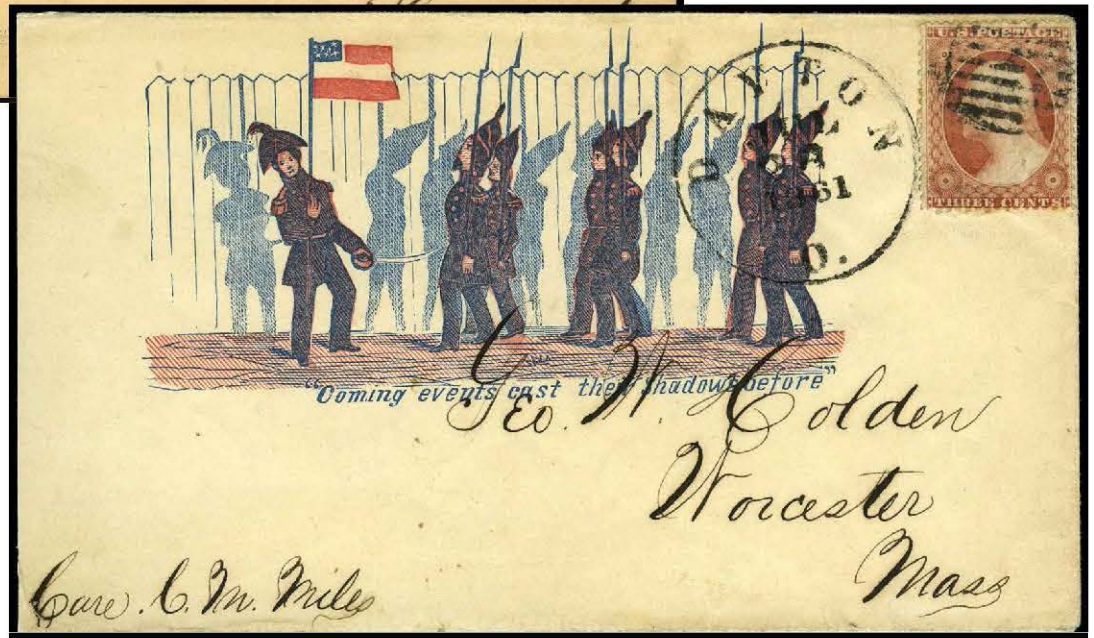 U.S. POSTAGE
THREE CENTS
DAYTON
1861
O.
"Coming events cast their Shadows before"
Geo. W. Colden
Worcester
Mass
Care. C. M. Miles